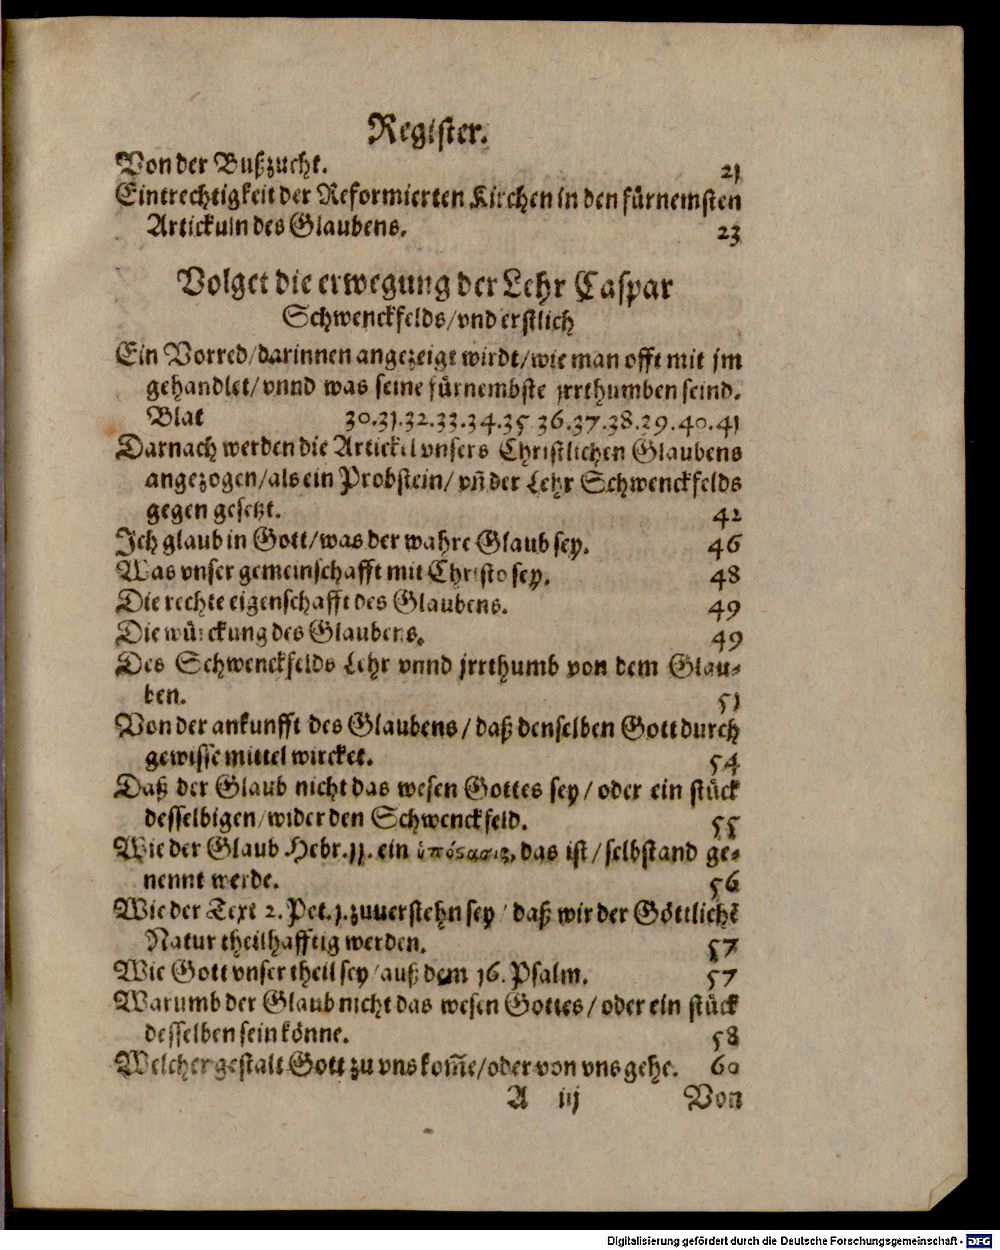 Register.
Von der Bußzucht. 21
Eintrechtigkeit der Reformierten Kirchen in den fürnemsten
Artickuln des Glaubens. 23
Volget die erwegung der Lehr Caspar
Schwenckfelds/vnd erstlich
Ein Vorred/darinnen angezeigt wirdt/wie man offt mit jm
gehandlet/vnnd was seine fürnembste jrrthumben seind.
Blat 30.31.32.33.34.35 36.37.38.39.40.41
Darnach werden die Artickel vnsers Christlichen Glaubens
angezogen/als ein Probstein/vñ der Lehr Schwenckfelds
gegen gesetzt. 42
Ich glaub in Gott/was der wahre Glaub sey. 46
Was vnser gemeinschafft mit Christo sey. 48
Die rechte eigenschafft des Glaubens. 49
Die würckung des Glaubens. 49
Des Schwenckfelds Lehr vnnd jrrthumb von dem Glau-
ben. 51
Von der ankunfft des Glaubens/daß denselben Gott durch
gewisse mittel wircket. 54
Daß der Glaub nicht das wesen Gottes sey/oder ein stück
desselbigen/wider den Schwenckfeld. 55
Wie der Glaub Hebr.11. ein ὑπόστασις, das ist/selbstand ge-
nennt werde. 56
Wie der Text 2. Pet.1. zuuerstehn sey/daß wir der Göttlichẽ
Natur theilhafftig werden. 57
Wie Gott vnser theil sey/auß dem 16. Psalm. 57
Warumb der Glaub nicht das wesen Gottes/oder ein stück
desselben sein könne. 58
Welcher gestalt Gott zu vns kom̃e/oder von vns gehe. 60
A iij Von
Digitalisierung gefördert durch die Deutsche Forschungsgemeinschaft - DFG